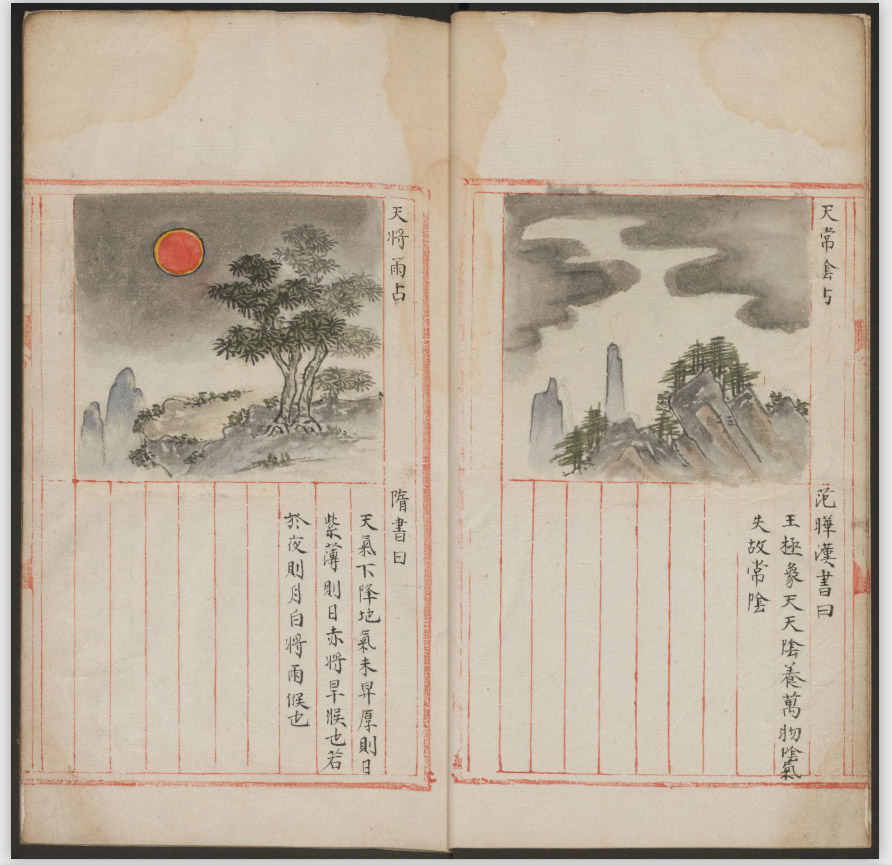 天常陰占
范曄漢書曰
王極象天天陰養萬物陰氣
失故常陰
天將雨占
隋書曰
天氣下降地氣未昇厚則日
紫薄則日赤將旱候也若
於夜則月白將雨候也